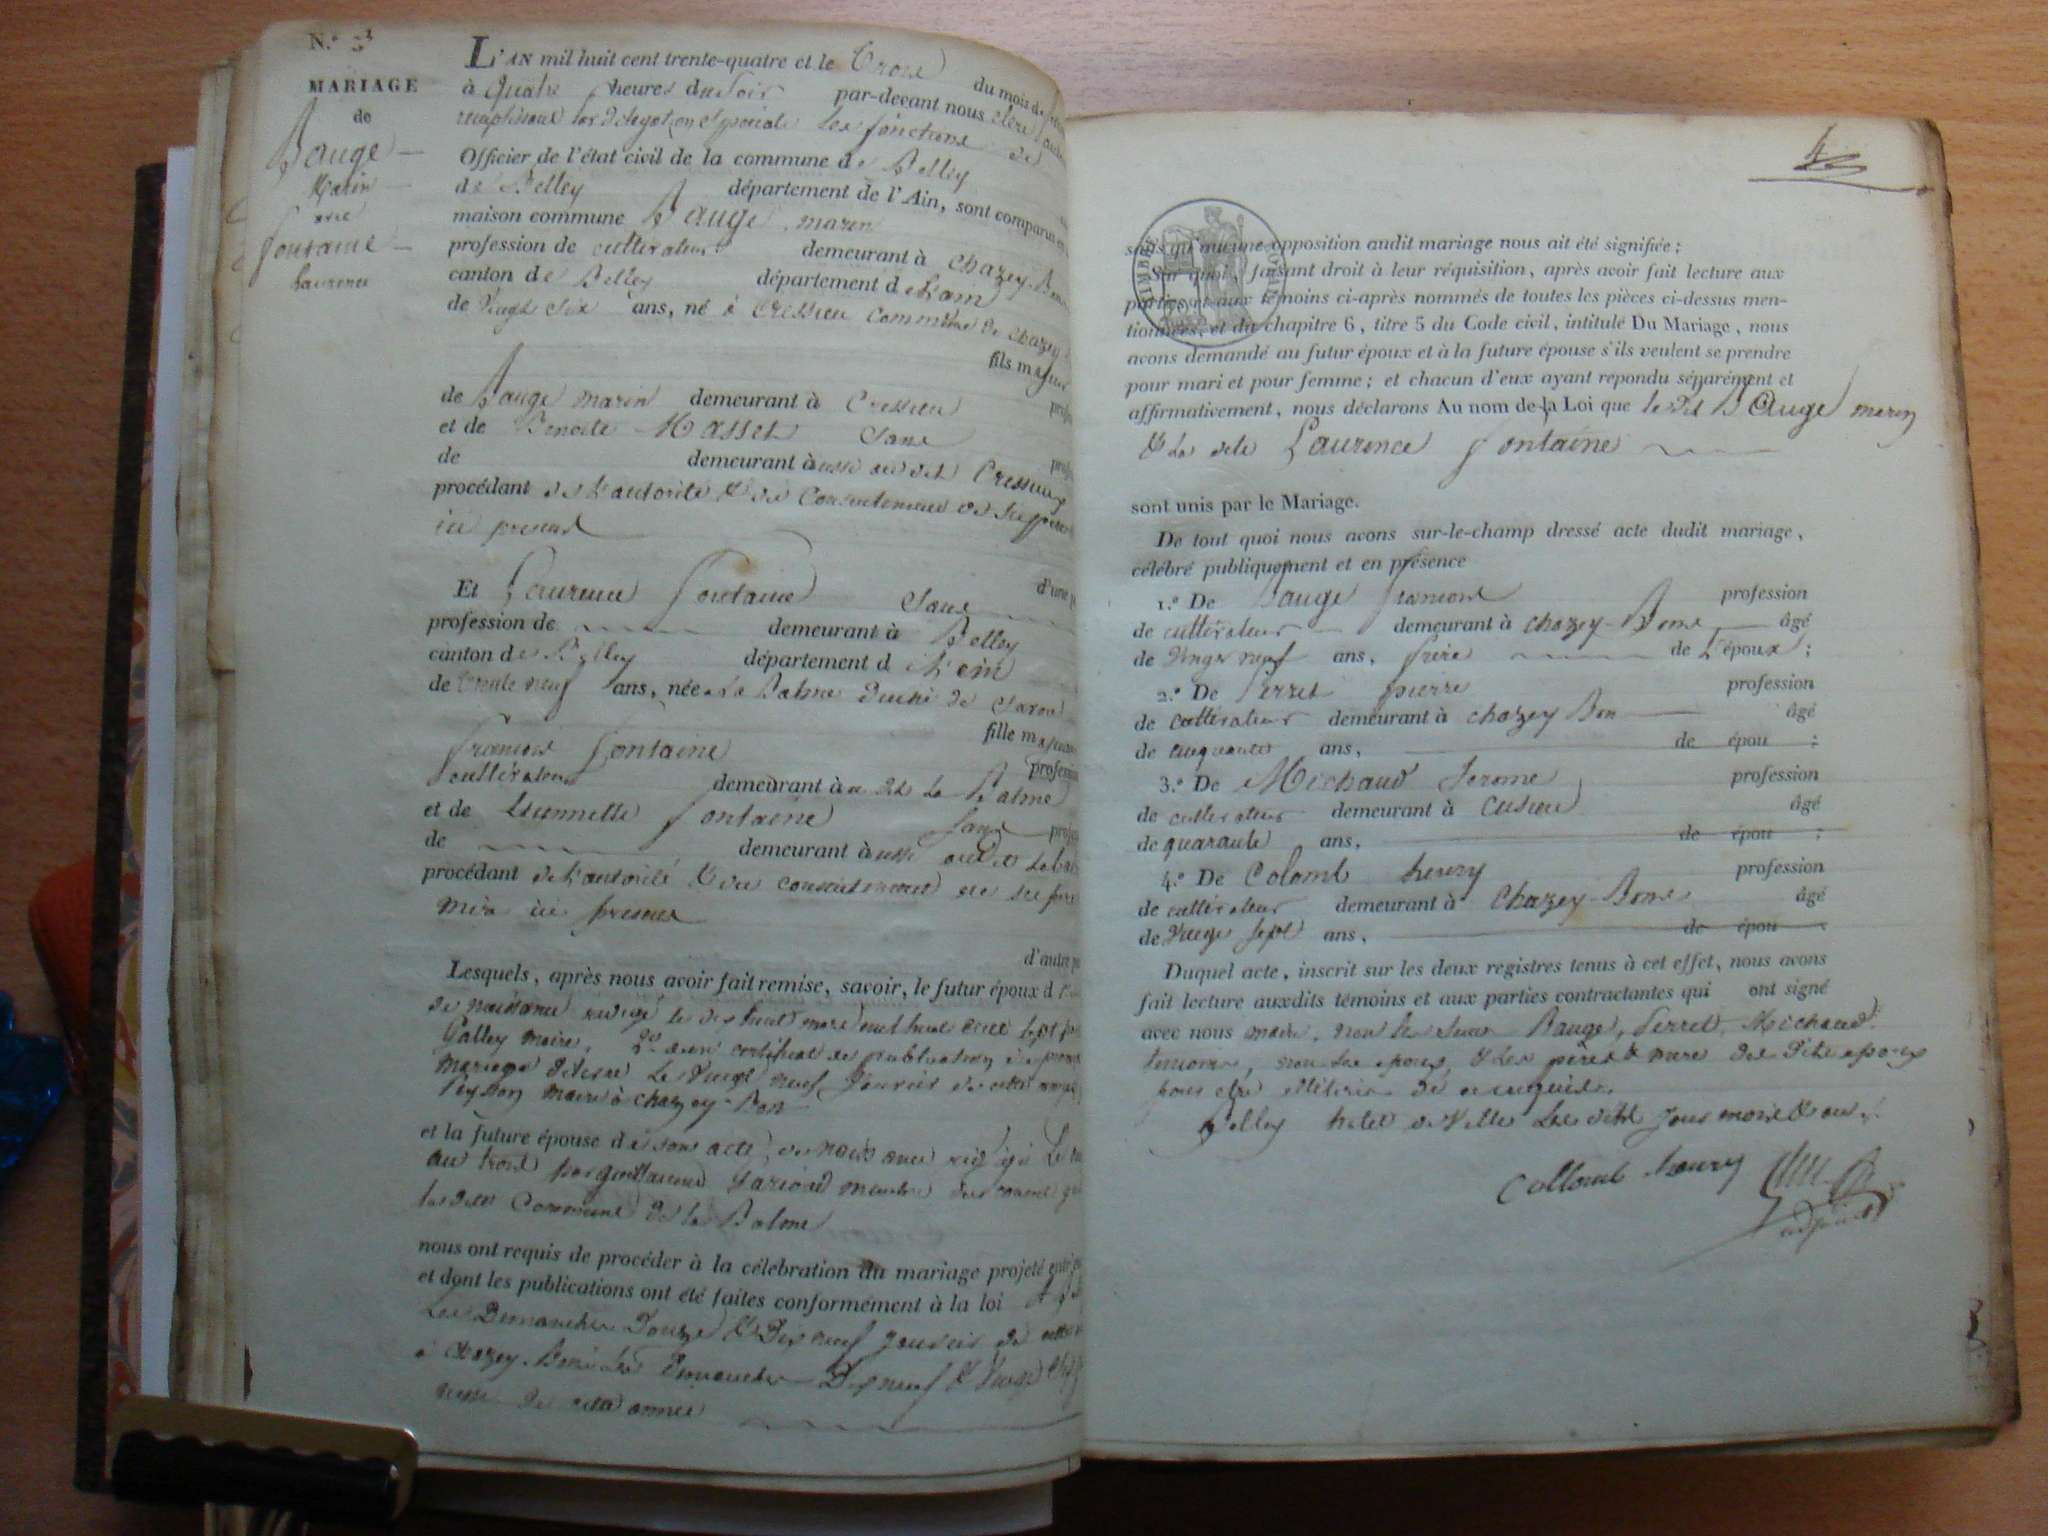 N.º 3
MARIAGE
de
Bauge
Marin
avec
fontaine
Laurence
L'AN mil huit cent trente-quatre et le Trois du mois de
à quatre heures du soir par-devant nous
remplissant par délégation spéciale les fonctions de
Officier de l'état civil de la commune de Belley
de Belley département de l'Ain, sont comparus en
maison commune Bauge marin
profession de cultivateur demeurant à Chazey-Bons
canton de Belley département de l'ain
de Vingt six ans, né à Cressieu commune de Chazey
fils majeur
de Bauge marin demeurant à Cressieu
et de Benoite Masset Sans
de demeurant à aussi audit Cressieu
procédant de l'autorité & du Consentement de ses père
ici présent
Et Laurence fontaine Sans d'une
profession de demeurant à Belley
canton de Belley département de l'ain
de trente neuf ans, née à La Balme Duché de Savoie
fille majeure
françois fontaine
cultivateur demeurant à au dit La Balme
et de fontaine Sans
de demeurant à aussi audit
procédant de l'autorité & du consentement de ses père
mère ici présens
d'autre
Lesquels, après nous avoir fait remise, savoir, le futur époux d
de naissance rédigé le dix huit mars mil huit cent sept
Galley maire, 2º d'un certificat de publication de
mariage délivré le Vingt neuf janvier de cette année
Peysson maire à Chazey-Bons
et la future épouse de son acte de naissance rédigé Le
au trois par guillaume membre du conseil
de la Commune de la Balme
nous ont requis de procéder à la célébration du mariage projeté entr'eux
et dont les publications ont été faites conformément à la loi
Les Dimanches Douze & Dix neuf janvier de cette
à Chazey-Bons les Dimanches Dix neuf & Vingt Six
de cette année
sans qu'aucune opposition audit mariage nous ait été signifiée ;
TIMBRE ROYAL
Sur quoi, faisant droit à leur réquisition, après avoir fait lecture aux
parties et aux témoins ci-après nommés de toutes les pièces ci-dessus men-
tionnées, et du chapitre 6, titre 5 du Code civil, intitulé Du Mariage, nous
avons demandé au futur époux et à la future épouse s'ils veulent se prendre
pour mari et pour femme ; et chacun d'eux ayant repondu séparément et
affirmativement, nous déclarons Au nom de la Loi que le dit Bauge marin
& La dite Laurence fontaine
sont unis par le Mariage.
De tout quoi nous avons sur-le-champ dressé acte dudit mariage,
célébré publiquement et en présence
1.º De Bauge françois profession
de cultivateur demeurant à chazey-Bons âgé
de vingt neuf ans, frère de L'époux ;
2.º De Perret pierre profession
de cultivateur demeurant à chazey Bon âgé
de cinquante ans, de épou ;
3.º De Michaud Jerome profession
de cultivateur demeurant à Cusieu âgé
de quarante ans, de épou ;
4.º De Colomb henry profession
de cultivateur demeurant à Chazey-Bons âgé
de Vingt sept ans, de épou
Duquel acte, inscrit sur les deux registres tenus à cet effet, nous avons
fait lecture auxdits témoins et aux parties contractantes qui ont signé
avec nous maire, non les sieurs Bauge, Perret, Michaud
témoins, non les époux, & Les pères & mère des dits époux
pour être illitérés de ce enquis.
Belley hotel de Ville Les dits jour mois & an.
Collomb henry
adjoint